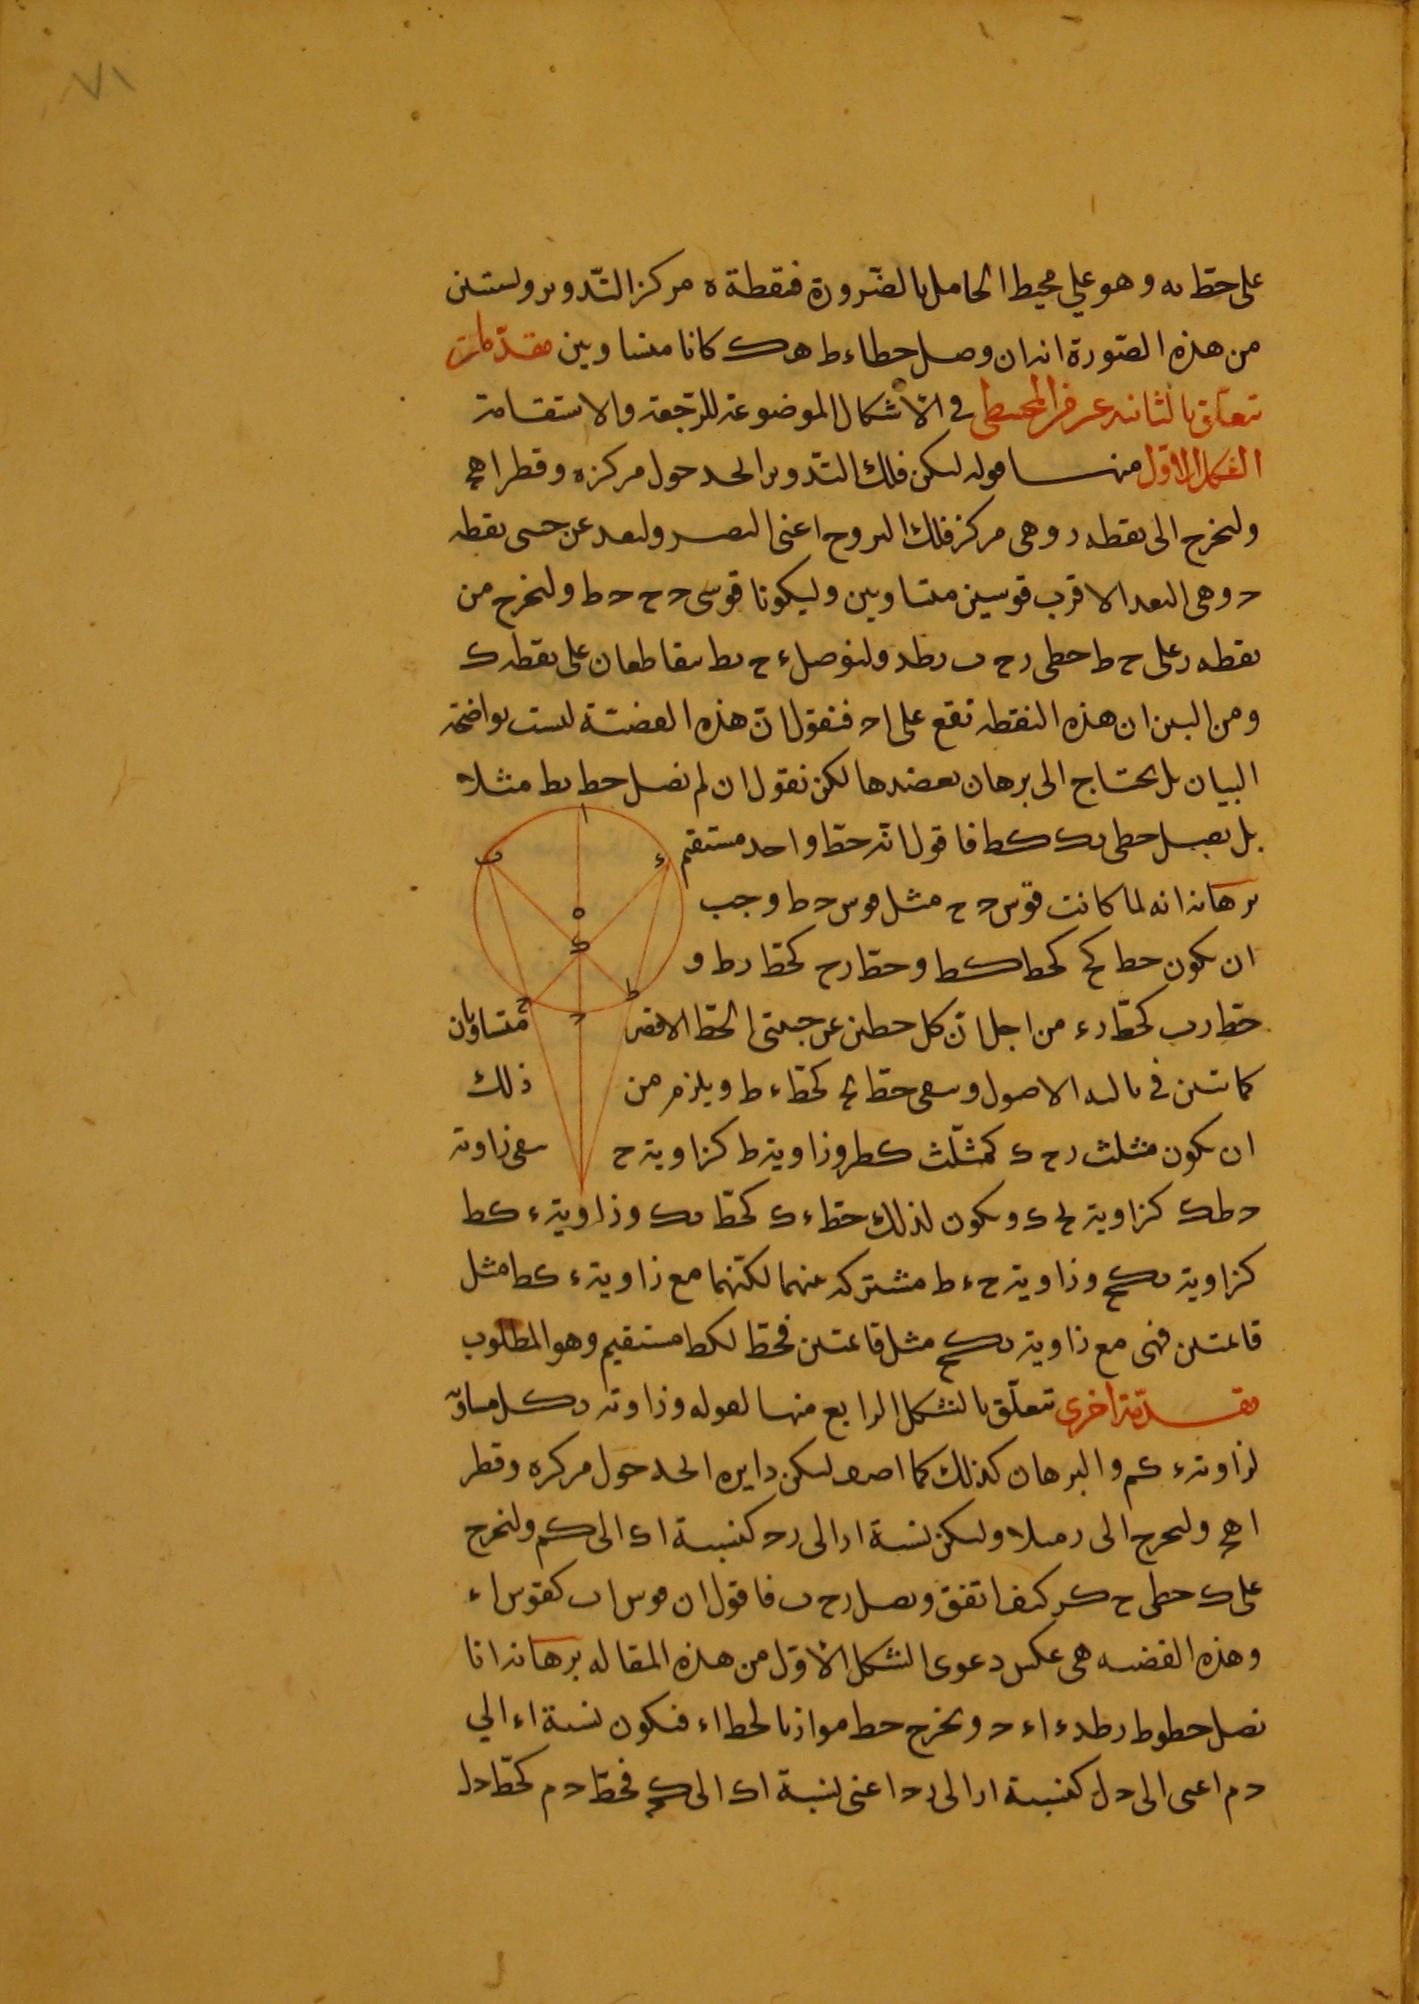 ٧١
على خط به وهو على محيط الحامل بالضرورة فنقطة ه مركز التدوير وليتبين
من هذه الصورة انه ان وصل خطا ء ط ه ك كانا متساويين مقدمات
تتعلق بالثانيه عشر من المجسطى فى الاشكال الموضوعة للرجعة والاستقامة
الشكل الاول منها قوله ليكن فلك التدوير ا ب ح د حول مركز ه وقطر ا ه ح
وليخرج الى نقطه ر وهى مركز فلك البروج اعنى البصر ولنفصل عن جنبى نقطه
ح وهى البعد الاقرب قوسين متساويين وليكونا قوسى ح ح ح ط ولنخرج من
نقطه ر على ح ط خطى ر ح ب ر ط د ولنوصل ء ح ب ط يتقاطعان على نقطه ك
ومن البين ان هذه النقطه تقع على ا ح فنقول ان هذه القضية ليست بواضحة
البيان بل يحتاج الى برهان يعضدها لكن نقول ان لم نصل خط ب ط مثلا
بل نصل خطى ب ك ك ط فاقول انه خط واحد مستقيم
برهانه انه لما كانت قوس ح ح مثل قوس ح ط وجب
ان يكون خط ك ح كخط ك ط وخط ر ح كخط ر ط و
خط ر ب كخط ر ء من اجل ان كل خطين عن جنبتى الخط الاقصر متساويان
كما تبين فى ثالثه الاصول وبقى خط ب ح كخط ء ط ويلزم من ذلك
ان يكون مثلث ر ح ك كمثلث ك ط ر وزاوية ط كزاوية ح بقى زاوية
د ط ك كزاوية ب ح ك ويكون لذلك خط ء ك كخط ب ك وزاوية ء ك ط
كزاوية ب ك ح وزاوية ح ء ط مشتركه عنهما لكنهما مع زاوية ء ك ط مثل
قائمتين فهى مع زاوية ب ك ح مثل قائمتين فخط ب ك ط مستقيم وهو المطلوب
مقدمة اخرى تتعلق بالشكل الرابع منها لقوله وزاوية ب ك ل مساوية
لزاوية ء ك م والبرهان كذلك كما اصف ليكن دايره ا ب ح د حول مركز ه وقطر
ا ه ح وليخرج الى ر مثلا وليكن نسبة ا ر الى ر ح كنسبة ا ك الى ك ح ولنخرج
على ك خطى ح ك ء كيف اتفق ونصل ر ح ب فاقول ان قوس ا ب كقوس ا ء
وهذه القضيه هى عكس دعوى الشكل الاول من هذه المقاله برهانه انا
نصل خطوط ر ط د ء ا ء ح ونخرج خط موازيا لخط ا ء فيكون نسبة ا ء الى
ح م اعنى الى ح ل كنسبة ا ر الى ر ح اعنى نسبة ا ك الى ك ح فخط ح م كخط ح ل